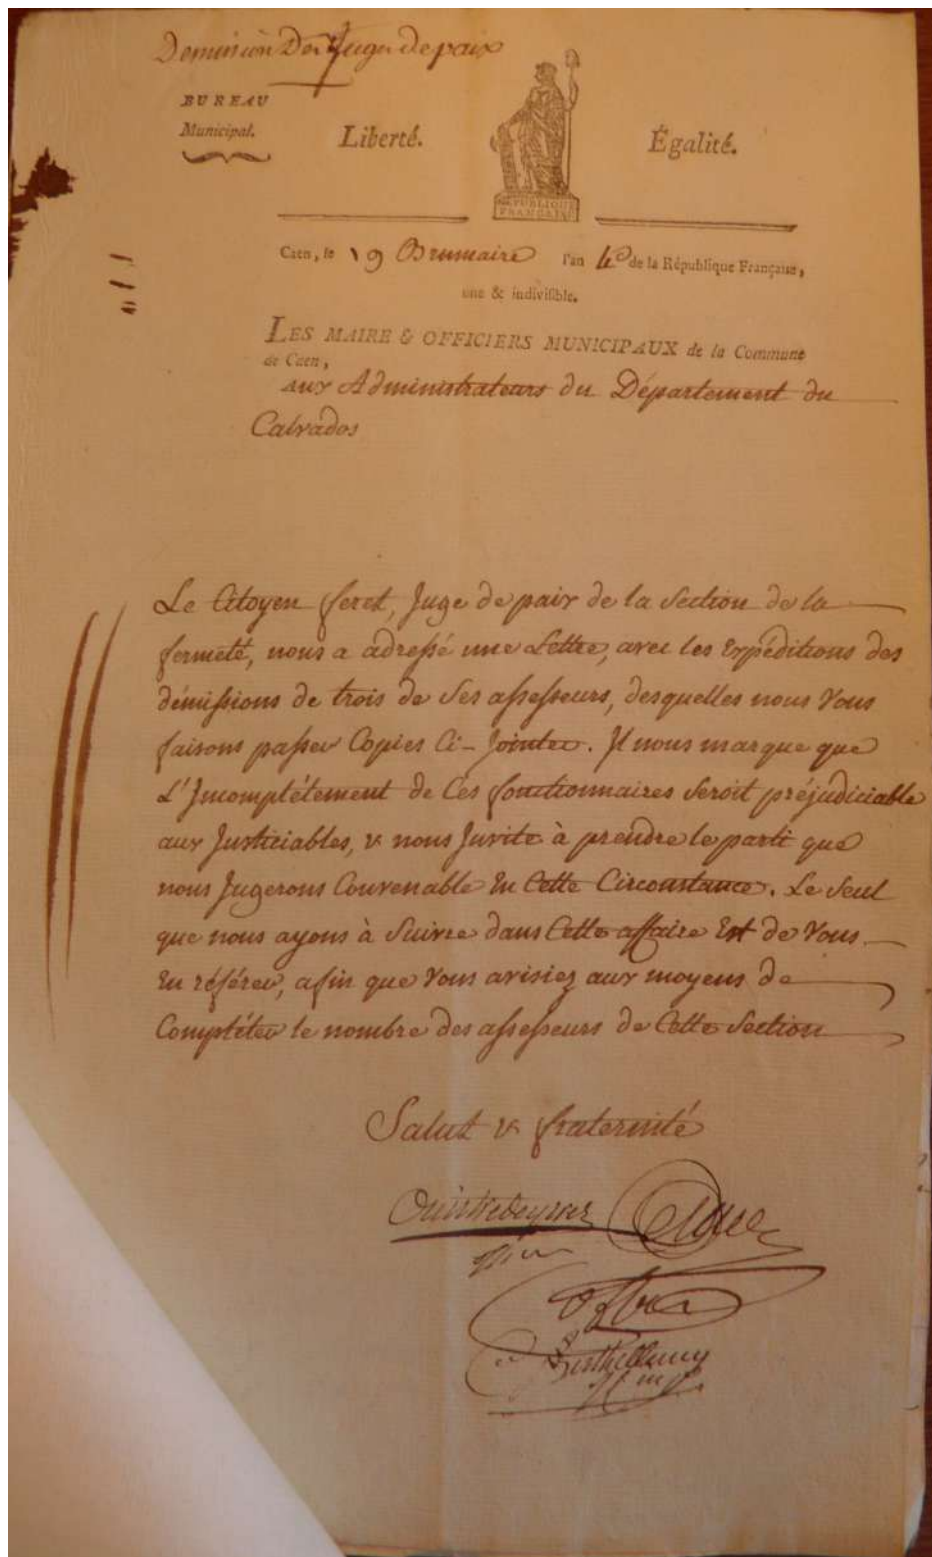 Demission Des Juges de paix
BUREAU
Municipal.
Liberté.
Égalité.
RÉPUBLIQUE
FRANÇAISE
Caen, le 19 Brumaire l'an 4e de la République Française,
une & indivisible.
LES MAIRE & OFFICIERS MUNICIPAUX de la Commune
de Caen,
aux Administrateurs du Département du
Calvados
Le Citoyen feret, Juge de paix de la Section de la
fermeté, nous a adressé une Lettre, avec les Expéditions des
démissions de trois de Ses assesseurs, desquelles nous Vous
faisons passer Copies Ci-Jointes. Il nous marque que
L'Incomplétement de Ces fonctionnaires Seroit préjudiciable
aux Justiciables, & nous Invite à prendre le parti que
nous Jugerons Convenable En Cette Circonstance. Le Seul
que nous ayons à Suivre dans Cette affaire Est de Vous
En référer, afin que Vous avisiez aux moyens de
Compléter le nombre des assesseurs de Cette Section
Salut & fraternité